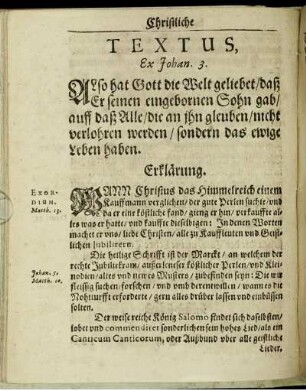 Christliche
TEXTUS,
Ex Johan. 3.
ALso hat Gott die Welt geliebet/daß
Er seinen eingebornen Sohn gab/
auff daß Alle/die an jhn gleuben/nicht
verlohren werden/sondern das ewige
Leben haben.
Erklärung.
EXOR-
DIUM.
Matth. 13.
WANN Christus das Himmelreich einem
Kauffmann verglichen/der gute Perlen suchte/und
da er eine köstliche fand/gieng er hin/verkauffte al-
les was er hatte/und kauffte dieselbigen: In denen Worten
machet er uns/liebe Christen/alle zu Kauffleuten und Geist-
lichen Jubilirern.
Johan. 5.
Matth.
Die heilige Schrifft ist der Marckt/an welchem der
rechte Jubilirkram/außerlesener köstlicher Perlen/und Klei-
nodien/altes und newes Musters/zubefinden seyn: Die wir
fleissig suchen/forschen/und umb derenwillen/wann es die
Nohtturfft erforderte/gern alles drüber lassen und einbüssen
solten.
Der weise reiche König Salomo findet sich daselbsten/
lobet und commendiret sonderlichen sein hohes Lied/als ein
Canticum Canticorum, oder Außbund über alle geistliche
Lieder.